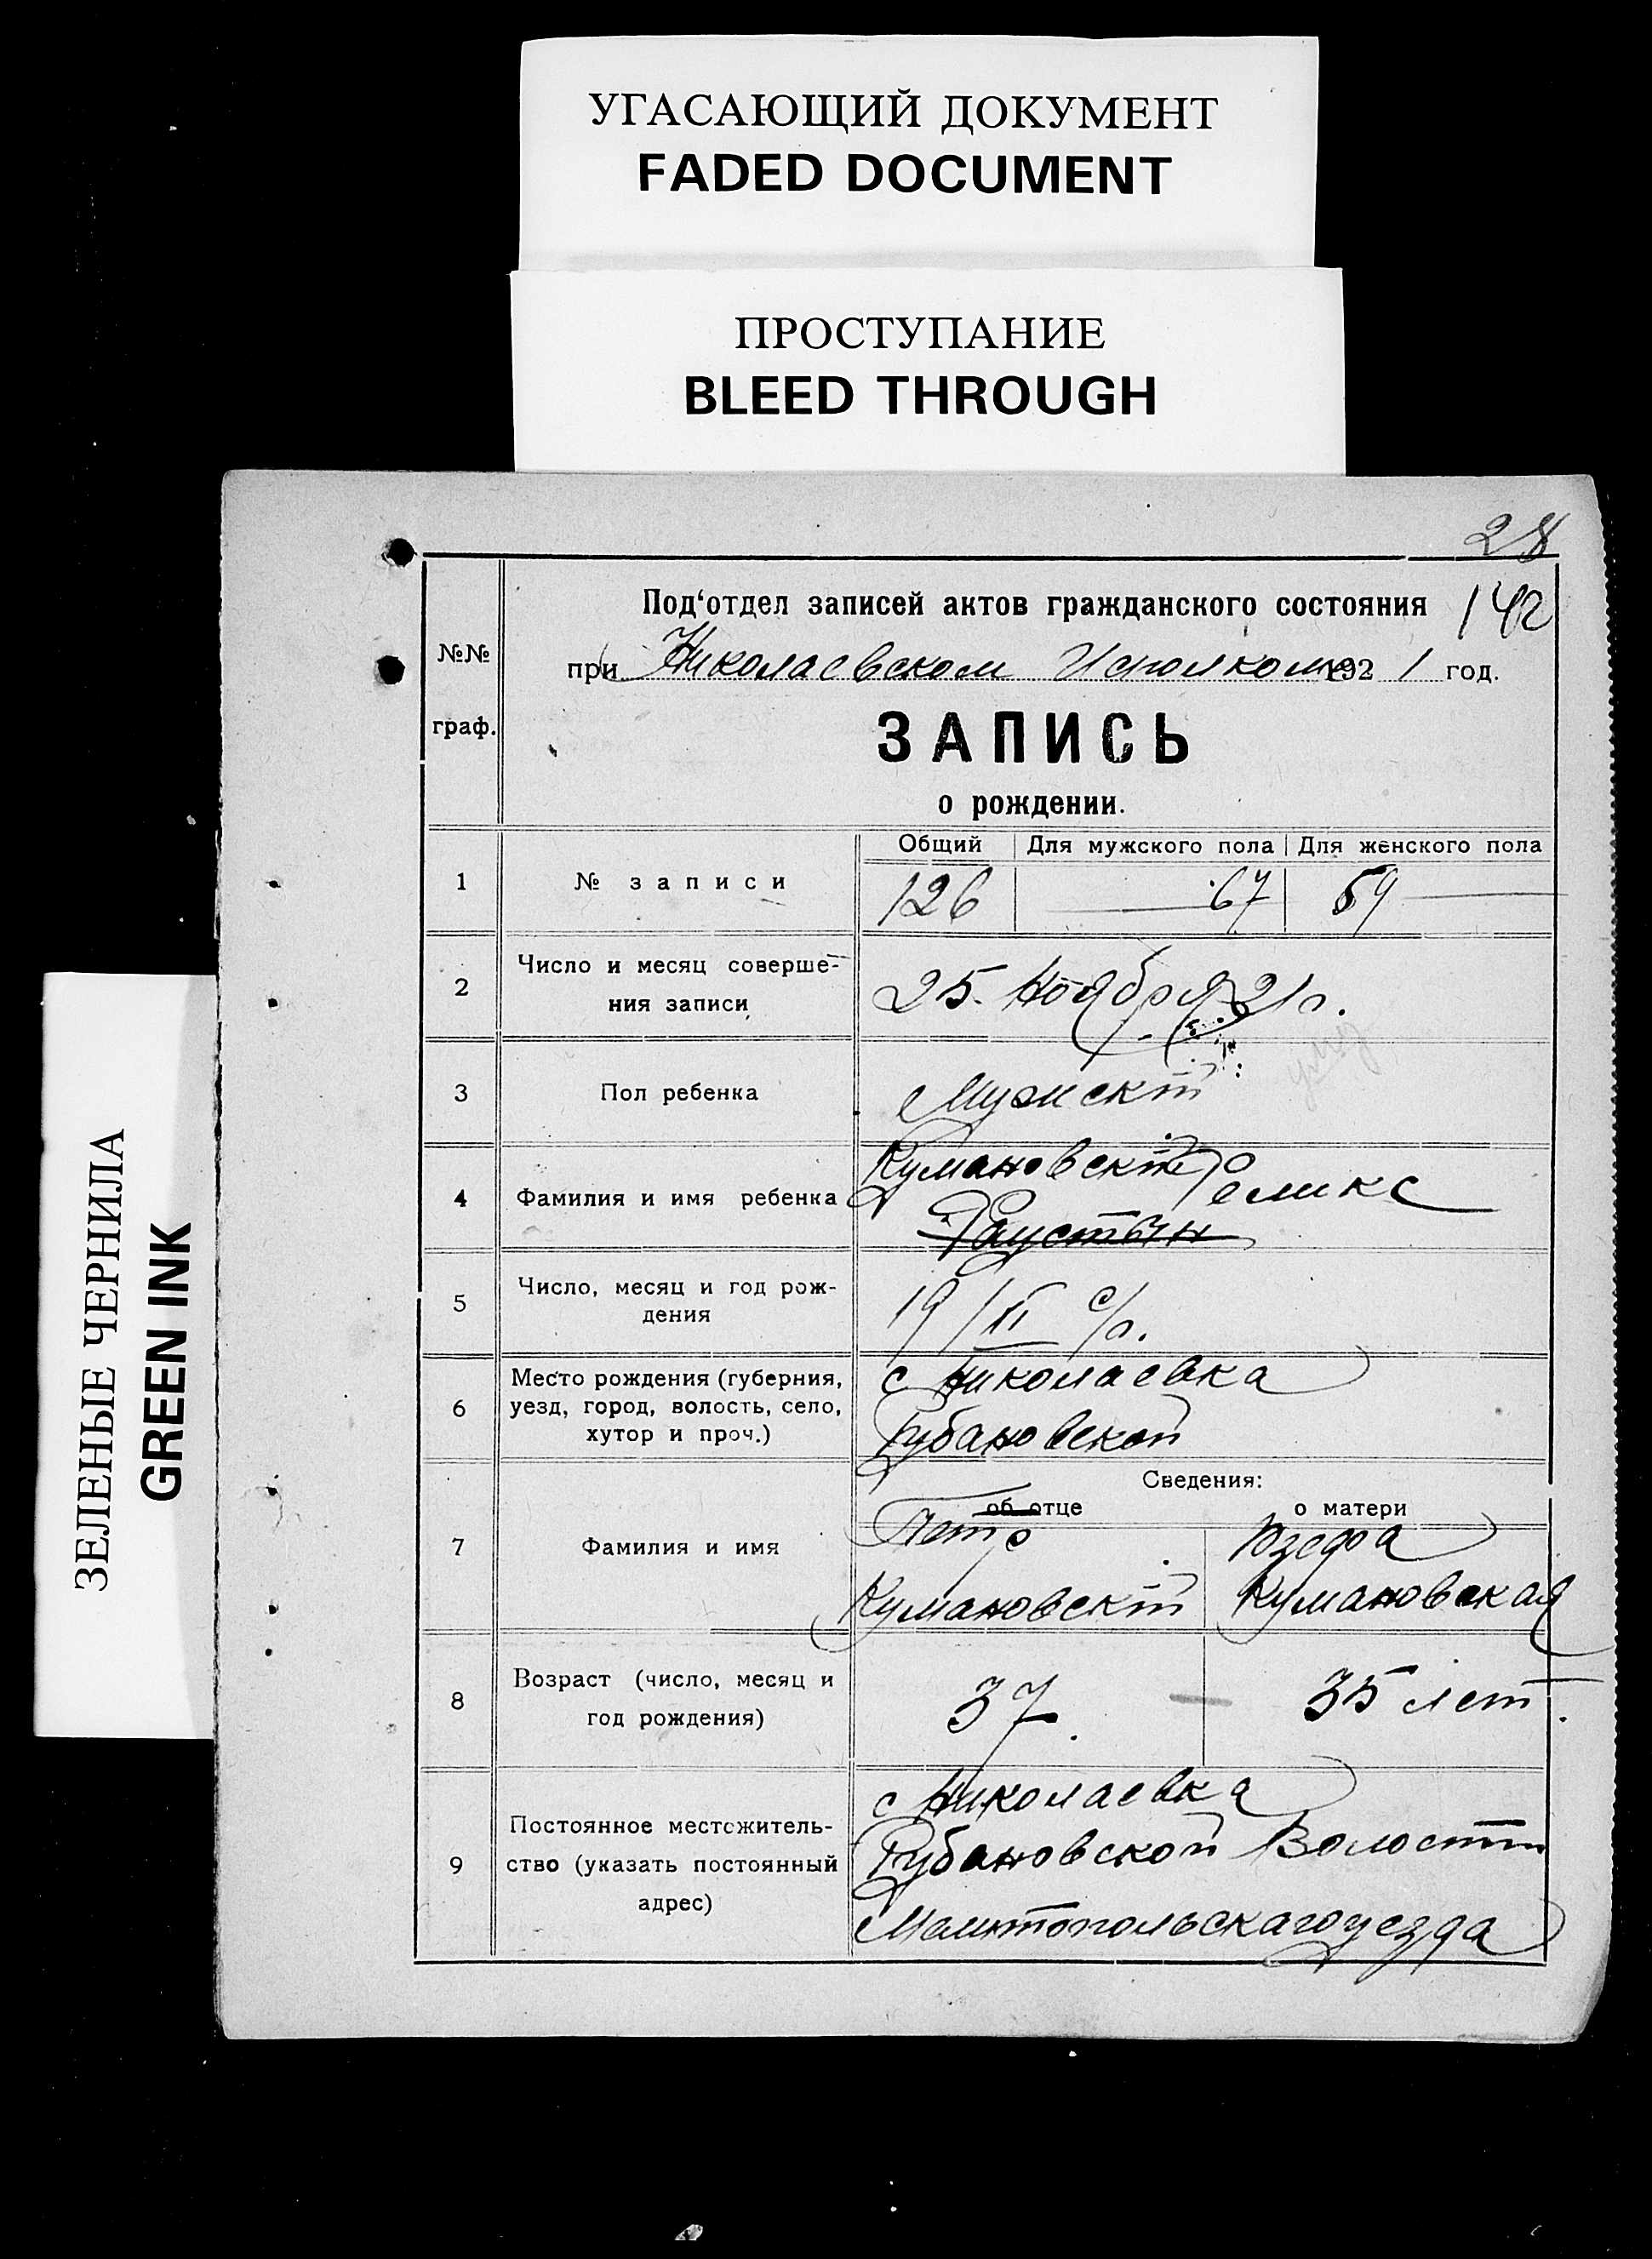 УГАСАЮЩИЙ ДОКУМЕНТ
FADED DOCUMENT
ПРОСТУПАНИЕ
BLEED THROUGH
ЗЕЛЕНЫЕ ЧЕРНИЛА
GREEN INK
28
142
№№ граф.
Под‘отдел записей актов гражданского состояния
при Николаевском Исполкоме 1921 год.
ЗАПИСЬ
о рождении.
Общий Для мужского пола Для женского пола
1 № записи 126 67 59
2 Число и месяц соверше-
ния записи 25. Ноября 21 г.
3 Пол ребенка Мужскій
4 Фамилия и имя ребенка Кумановскій Феликс
Фаустын
5 Число, месяц и год рож-
дения 19/II с/г.
6 Место рождения (губерния,
уезд, город, волость, село,
хутор и проч.)
с Николаевка
Рубановской
Сведения:
об отце о матери
7 Фамилия и имя
Петр Юзефа
Кумановскій Кумановская
8 Возраст (число, месяц и
год рождения) 37. 35 лет.
9 Постоянное местожитель-
ство (указать постоянный
адрес)
с Николаевка
Рубановской Волости
Мелитопольскаго уезда